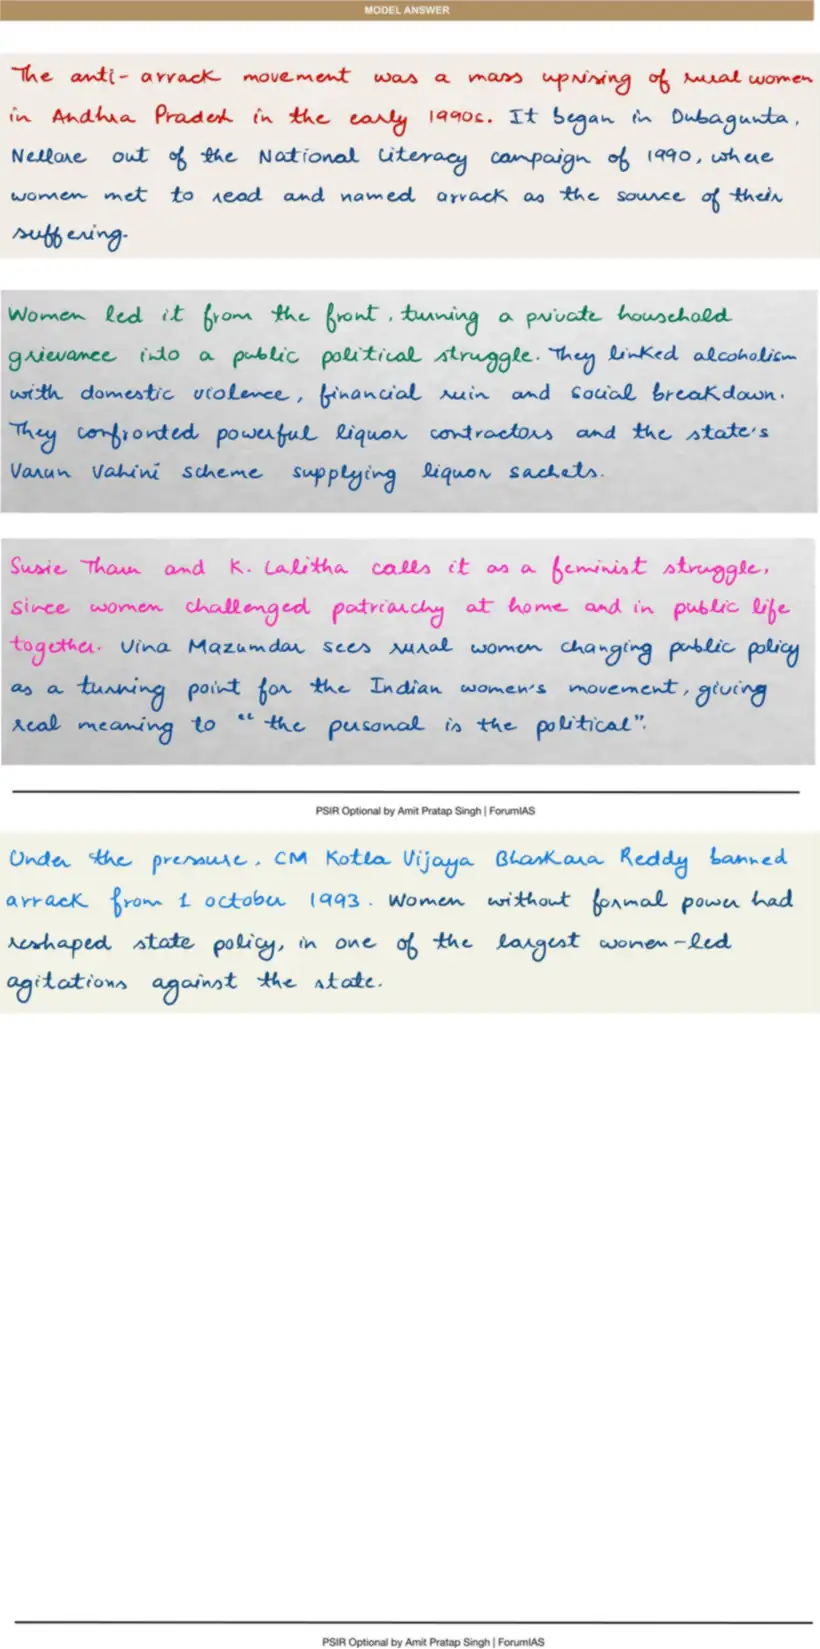 MODEL ANSWER
The anti-arrack movement was a mass uprising of rural women
in Andhra Pradesh in the early 1990s. It began in Dubagunta,
Nellore out of the National Literacy campaign of 1990, where
women met to read and named arrack as the source of their
suffering.
Women led it from the front, turning a private household
grievance into a public political struggle. They linked alcoholism
with domestic violence, financial ruin and social breakdown.
They confronted powerful liquor contractors and the state's
Varun Vahini scheme supplying liquor sachets.
Susie Tharu and K. Lalitha calls it as a feminist struggle,
since women challenged patriarchy at home and in public life
together. Vina Mazumdar sees rural women changing public policy
as a turning point for the Indian women's movement, giving
real meaning to "the personal is the political".
PSIR Optional by Amit Pratap Singh | ForumIAS
Under the pressure, CM Kotla Vijaya Bhaskara Reddy banned
arrack from 1 october 1993. Women without formal power had
reshaped state policy, in one of the largest women-led
agitations against the state.
PSIR Optional by Amit Pratap Singh | ForumIAS